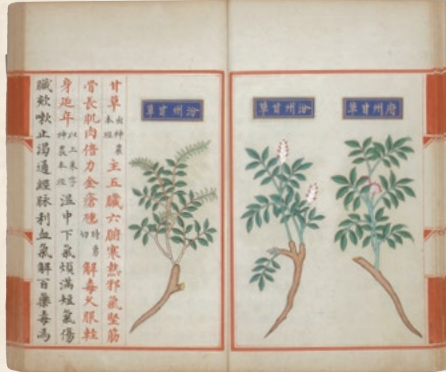 府州甘草
汾州甘草
汾州甘草
甘草出神農本經主五臟六腑寒熱邪氣堅筋
骨長肌肉倍力金瘡尰時勇切解毒久服輕
身延年以上朱字神農本經溫中下氣煩滿短氣傷
臟欬嗽止渴通經脉利血氣解百藥毒爲